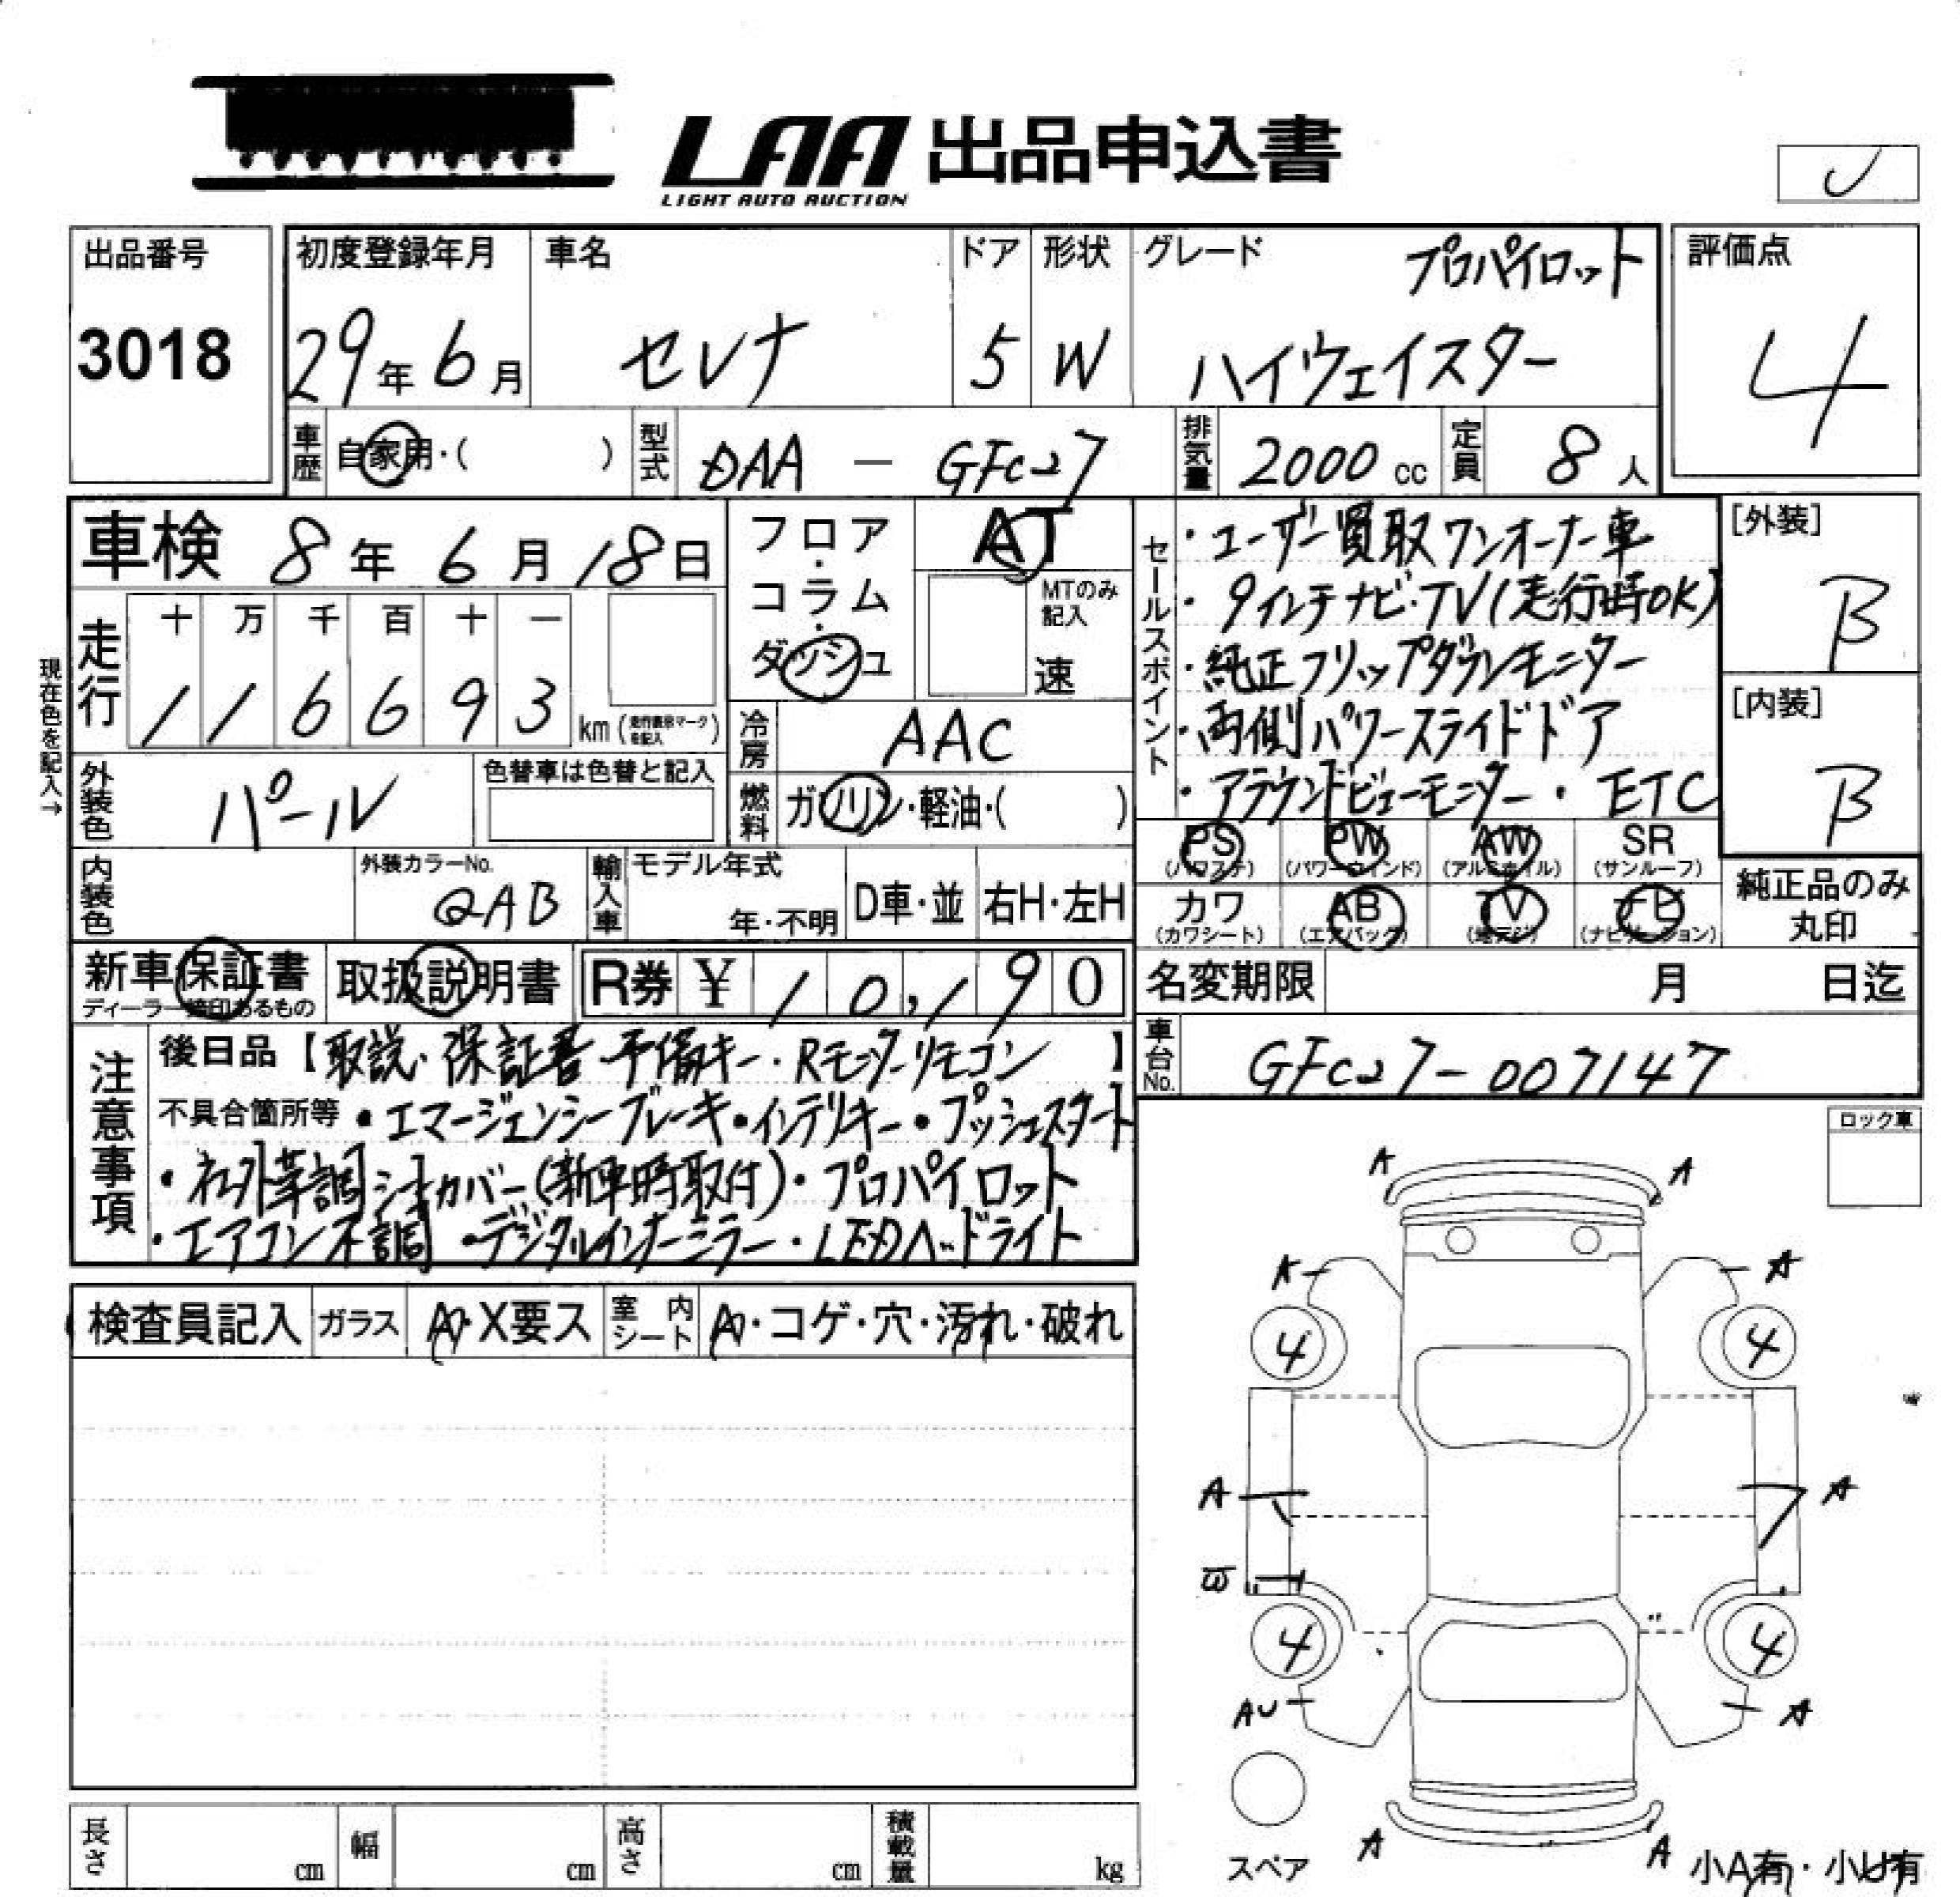 LAA 出品申込書
LIGHT AUTO AUCTION
出品番号
3018
初度登録年月
29年6月
車名
セレナ
ドア
5
形状
W
グレード
プロパイロット
ハイウェイスター
評価点
4
車歴 自家用・( )
型式 DAA - GFC27
排気量 2000cc
定員 8人
車検 8年6月18日
フロア・コラム・ダッシュ
AT
MTのみ記入
速
走行
十 万 千 百 十 一
1 1 6 6 9 3 km (走行表示マークを記入)
現在色を記入→
冷房 AAC
外装色 パール
色替車は色替と記入
燃料 ガソリン・軽油・( )
内装色
外装カラーNo.
QAB
輸入車 モデル年式
年・不明
D車・並 右H・左H
新車保証書
取扱説明書
R券 ¥10,190
セールスポイント
・ユーザー買取ワンオーナー車
・9インチナビ・TV(走行時OK)
・純正フリップダウンモニター
・両側パワースライドドア
・アラウンドビューモニター・ETC
[外装]
B
[内装]
B
PS (パワステ) PW (パワーウインド) AW (アルミホイル) SR (サンルーフ)
カワ (カワシート) AB (エアバッグ) TV (地デジ) ナビ (ナビゲーション)
純正品のみ
丸印
名変期限 月 日迄
車台No. GFC27-007147
注意事項
後日品【取説・保証書・予備キー・Rモニターリモコン】
不具合箇所等 ・エマージェンシーブレーキ・インテリキー・プッシュスタート
・社外革調シートカバー(新車時取付)・プロパイロット
・エアコン不調 ・デジタルインナーミラー・LEDヘッドライト
検査員記入 ガラス A・X要ス 室内シート A・コゲ・穴・汚れ・破れ
ロック車
A A
A A
4 4
A A
W
4 4
AU A
スペア
A A
小A有・小U有
長さ cm 幅 cm 高さ cm 積載量 kg